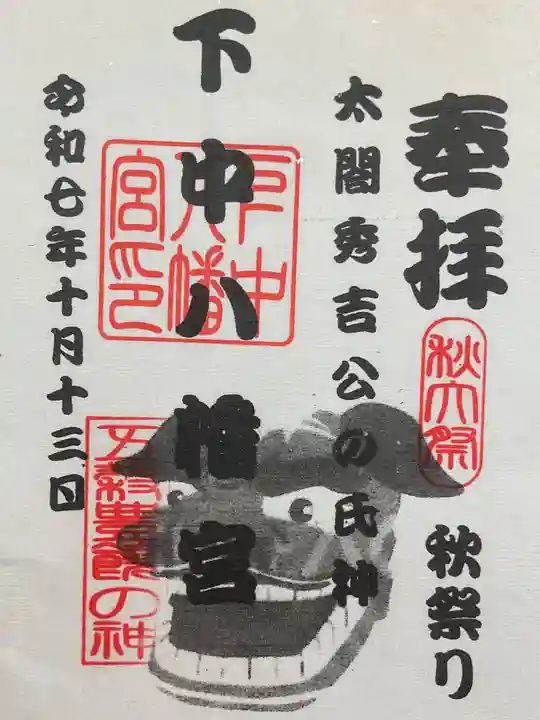 奉拝
秋大祭
秋祭り
太閤秀吉公の氏神
下中八幡宮
下中八幡宮印
令和七年十月十三日
五穀豊饒の神